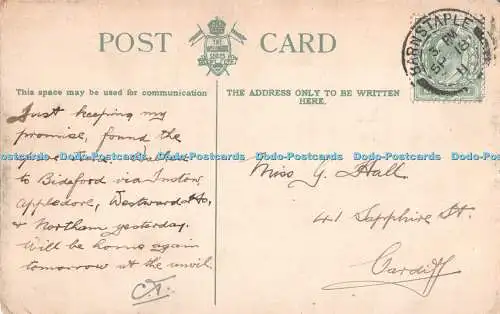 POST CARD
THE WELLINGTON SERIES
This space may be used for communication
THE ADDRESS ONLY TO BE WRITTEN
HERE.
BARNSTAPLE
Just keeping my
promise, found the
to Bideford via Instow,
Appledore, Westward Ho,
& Northam yesterday.
Will be home again
tomorrow at the anvil.
C.F.
Miss Y. Hall
41 Sapphire St.
Cardiff
Dodo-Postcards Dodo-Postcards Dodo-Postcards Dodo-Postcards Dodo-Postcards